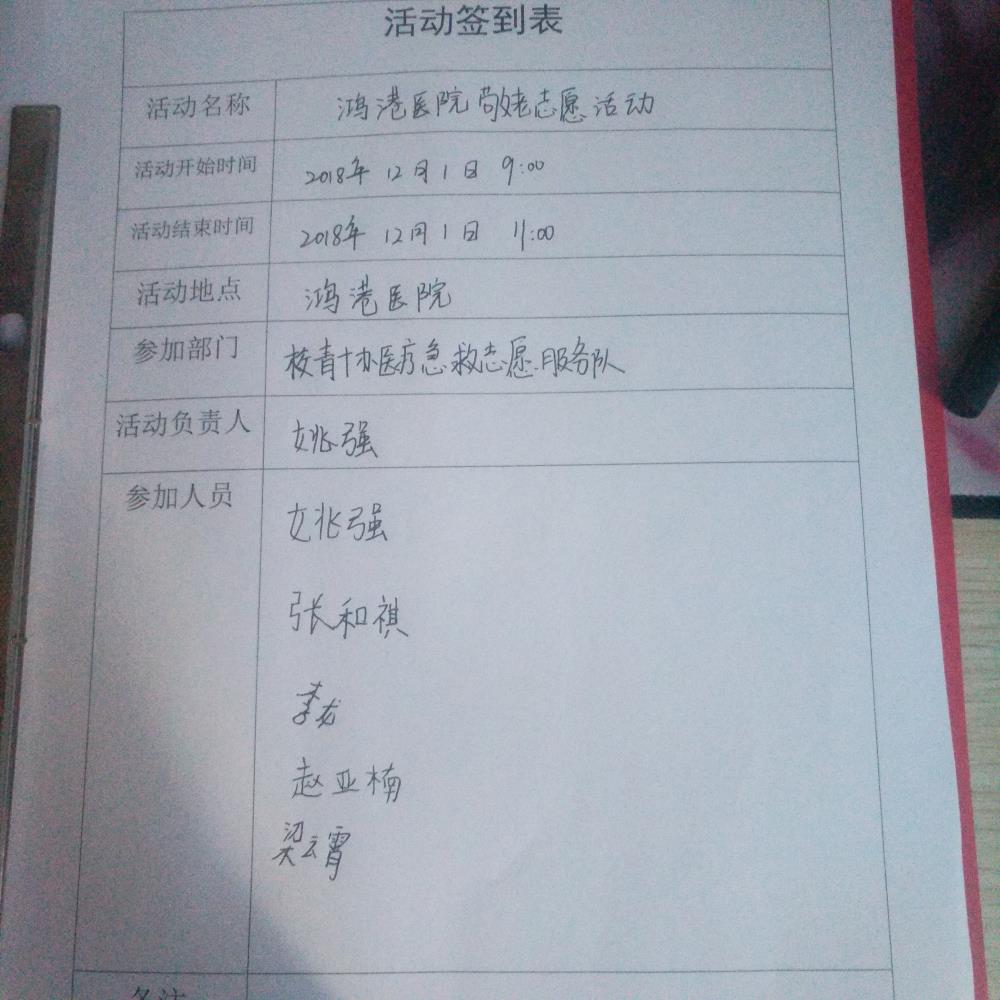 活动签到表
活动名称 鸿港医院敬老志愿活动
活动开始时间 2018年12月1日 9:00
活动结束时间 2018年12月1日 11:00
活动地点 鸿港医院
参加部门 校青协医疗急救志愿服务队
活动负责人 姚兆强
参加人员 姚兆强
张和祺
李龙
赵亚楠
梁云霄
备注